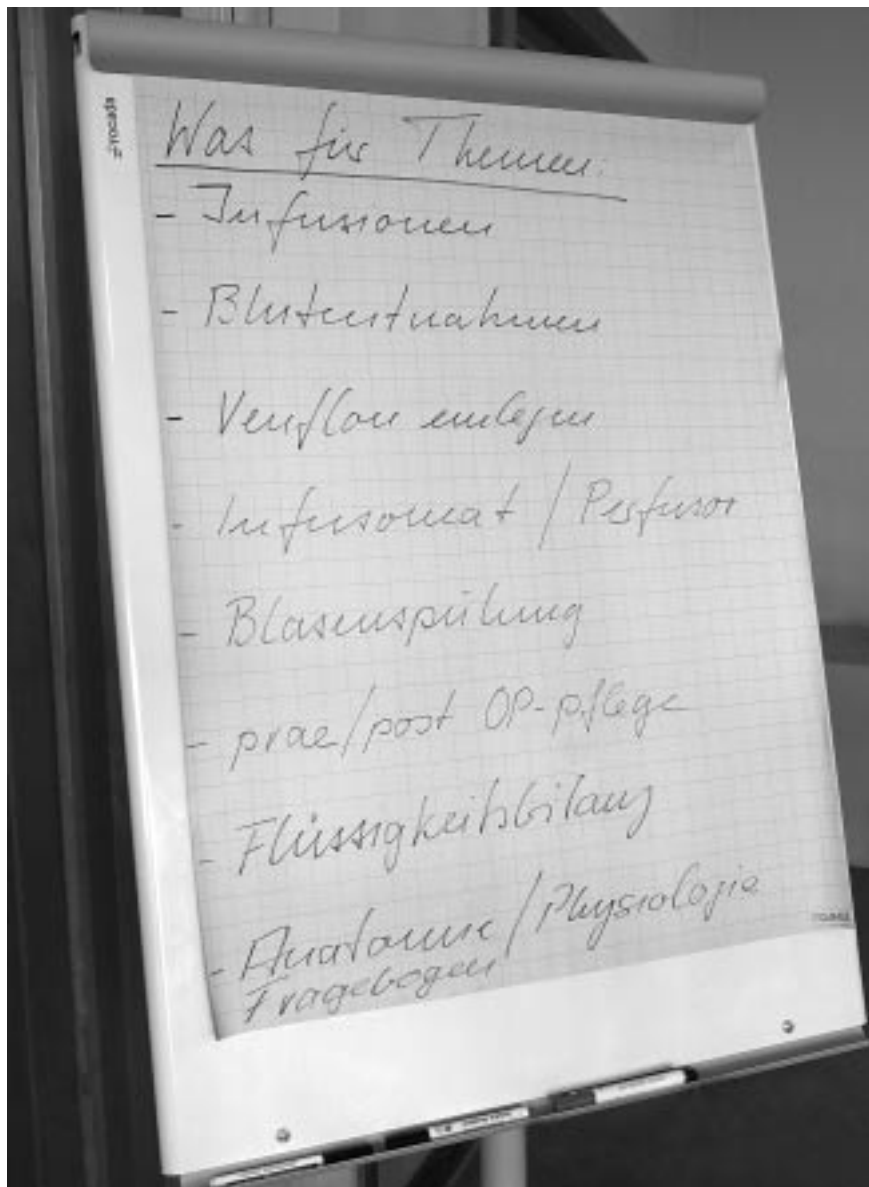 rocada
Was für Themen:
- Infusionen
- Blutentnahmen
- Venflon einlegen
- Infusomat / Perfusor
- Blasenspülung
- prae/post OP-pflege
- Flüssigkeitsbilanz
- Anatomie / Physiologie
Fragebogen